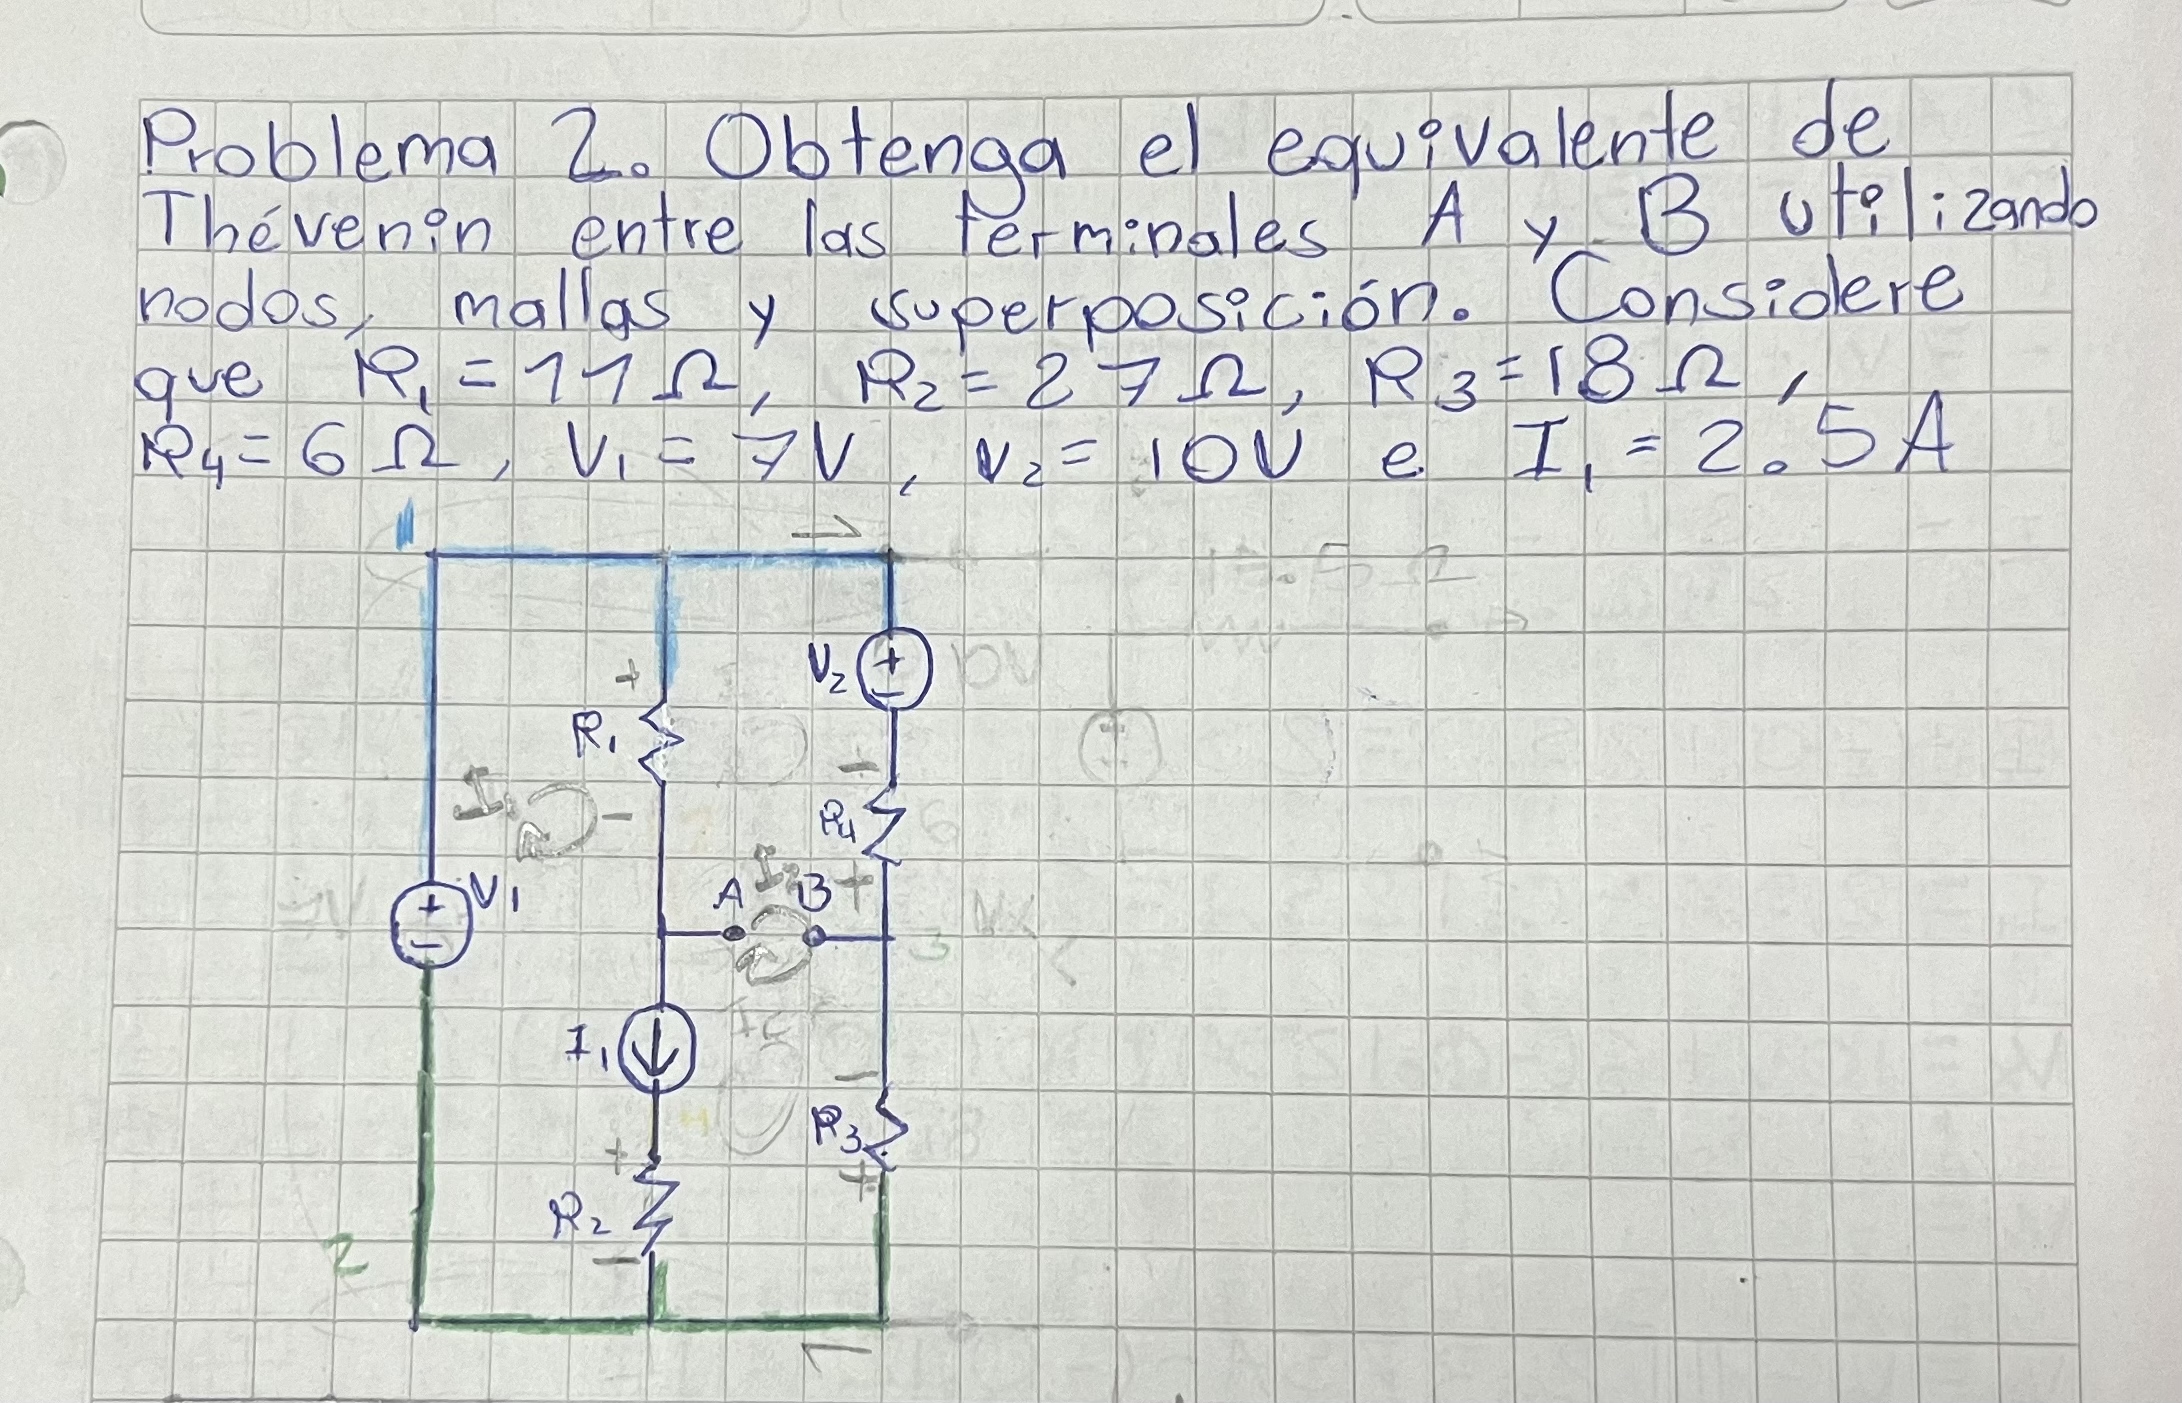 Problema 2. Obtenga el equivalente de
Thévenin entre las terminales A y B utilizando
nodos, mallas y superposición. Considere
que R1 = 11 Ω, R2 = 27 Ω, R3 = 18 Ω,
R4 = 6 Ω, V1 = 7V, V2 = 10V e I1 = 2.5A
1
V2
+
-
+
R1
-
-
R4
I1
I2
+
A
B
V1
+
-
3
I1
-
R3
+
+
R2
-
2